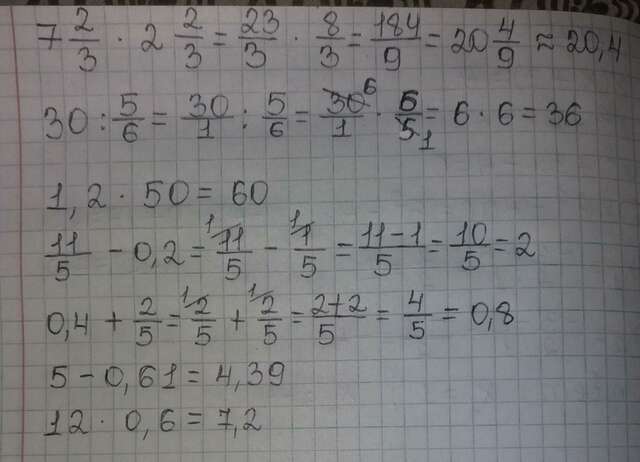 7 2/3 · 2 2/3 = 23/3 · 8/3 = 184/9 = 20 4/9 ≈ 20,4
30 : 5/6 = 30/1 : 5/6 = 30⁶/1 · 6/5₁ = 6 · 6 = 36
1,2 · 50 = 60
11/5 - 0,2 = ¹⁾11/5 - ¹⁾1/5 = 11-1/5 = 10/5 = 2
0,4 + 2/5 = ¹⁾2/5 + ¹⁾2/5 = 2+2/5 = 4/5 = 0,8
5 - 0,61 = 4,39
12 · 0,6 = 7,2